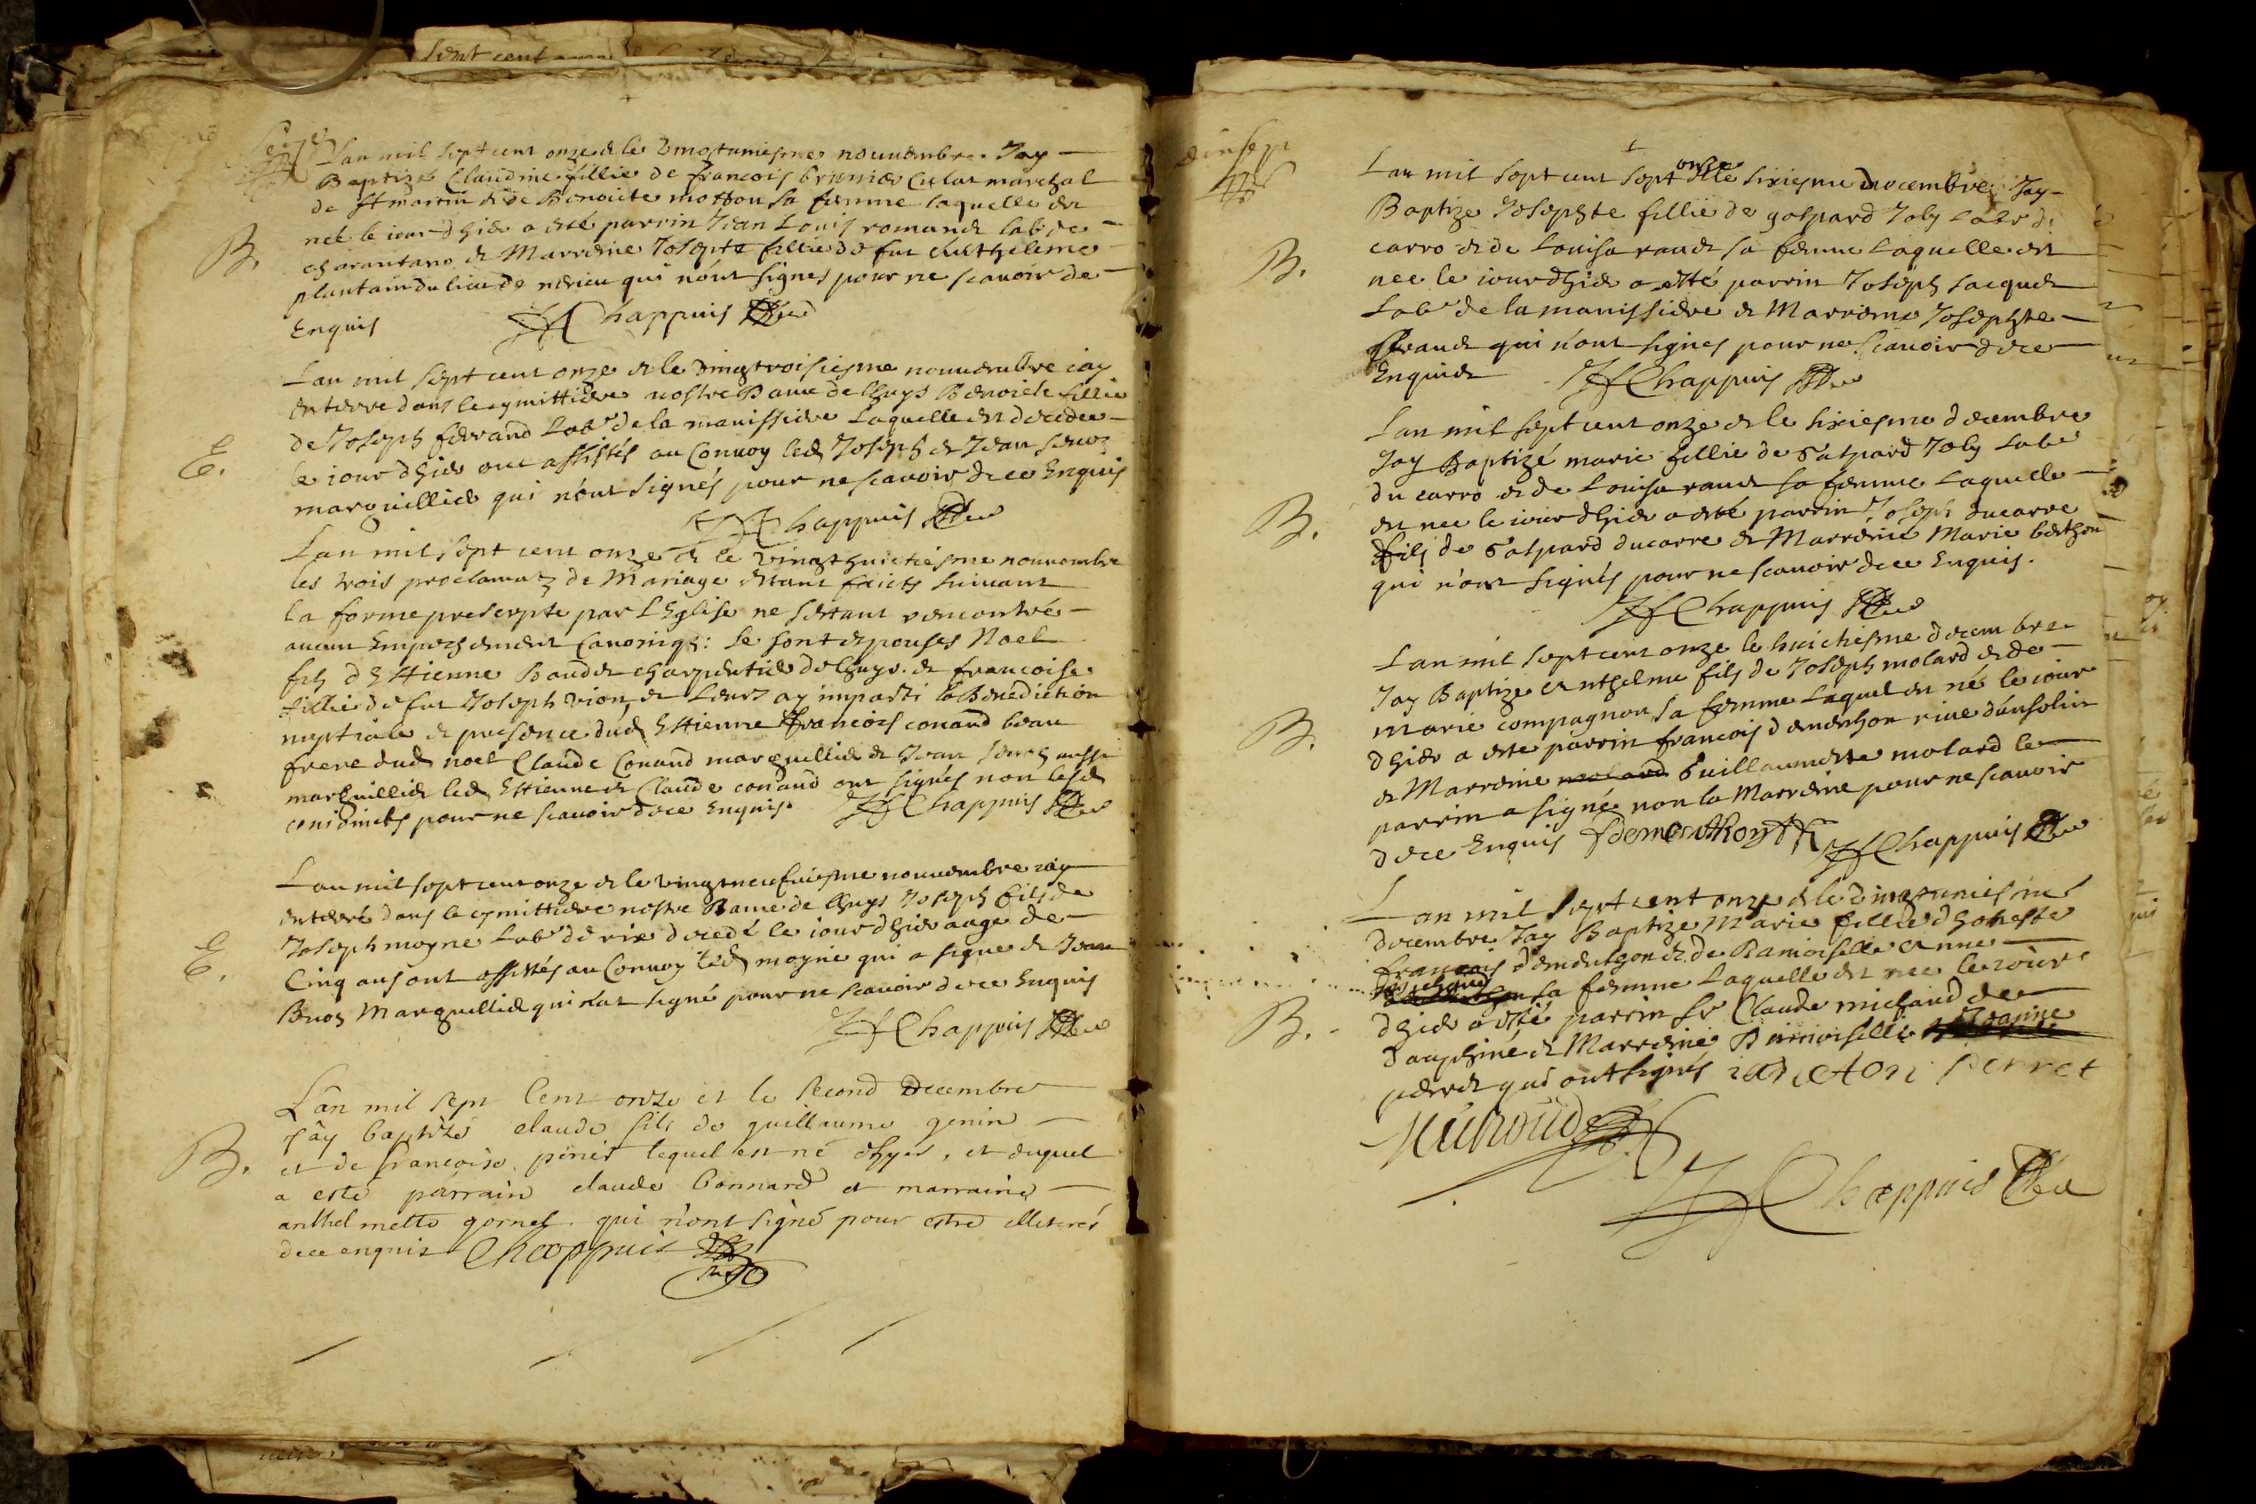 Sept cent
Seize
L'an mil sept cent onze & le vingtuniesme nouuembre Jay
Baptizé Claudine fillie de francois brunier Cu lat marechal
de St martin & de Benoite motton sa femme laquelle est
née le iour dhier a esté parrin Jean Louis romand lab. de
charantano & Marreine Josepte fillie de fut Anthelme
plantain du lieu de nerieu qui n'ont signes pour ne scauoir de
Enquis JF Chappuis
B.
L'an mil sept cent onze & le vingtroisiesme nouuembre iay
enterre dans le cymittiere nostre Dame de lhuys Benoiste fillie
de Joseph ferrand Labr de la manissiere laquelle est decedee
le iour dhier ont assistés au Conuoy led Joseph & Jean
marguillier qui n'ont signés pour ne scauoir de ce Enquis
JF Chappuis
E.
L'an mil sept cent onze & le vingthuictiesme nouuembre
les trois proclamatz de Mariage estant faicts suiuant
la forme prescrypte par L'Eglise ne s'estant rencontré
aucun Empeschement Canoniqe: se sont espouses Noel
fils d'Ettienne Baudet charpentier de lhuys & francoise
fillie de fut Joseph vion, & Leurz ay imparti la Benediction
nuptiale & presence dud Ettienne francois conand beau
frere dud noel Claude Conand marguillier & Jean aussi
marguillier led Ettienne & Claude conand ont signés non lesd
conioincts pour ne scauoir de ce Enquis. JF Chappuis
L'an mil sept cent onze & le vingtneufuiesme nouuembre iay
enterré dans le cymittiere nostre Dame de lhuys Joseph fils de
Joseph moyne Labr de rix decedé le iour dhier aage de
Cinq ans ont assistés au Conuoy led moyne qui a signe & Jean
Buoz Marguillier qui n'at signé pour ne scauoir de ce Enquis
JF Chappuis
E.
L'an mil sept Cent onze et le second decembre
j'ay baptizé claude fils de guillaume genin
et de francoise perier lequel est né dhyer, et duquel
a esté parrain claude bonnard et marraine
anthelmette gornet qui n'ont signé pour estre illiterés
de ce enquis Chappuis
B.
dixsept
L'an mil sept cent sept onze & le sixiesme decembre Jay
Baptize Josephte fillie de gaspard Joly Labr d
carro & de Louisa raude sa femme laquelle est
nee le iour dhier a etté parrin Joseph Jacquet
Labr de la manissiere & Marreine Josephte
ferrand qui n'ont signes pour ne scauoir de ce
Enquier JF Chappuis
B.
L'an mil sept cent onze & le sixiesme decembre
Jay Baptizé marie fillie de Gaspard Joly Labr
du carro & de Louisa raude sa femme laquelle
est nee le iour dhier a esté parrin Joseph ducarre
fils de Gaspard ducarre & Marreine Marie berthon
qui n'ont signés pour ne scauoir de ce Enquis.
JF Chappuis
B.
L'an mil sept cent onze le huictiesme decembre
Jay Baptize Anthelme fils de Joseph molard & de
marie compagnon sa femme laquel est né le iour
dhier a este parrin francois demerthon
& Marreine molard Guillaumette molard le
parrin a signé non la Marreine pour ne scauoir
de ce Enquis fdemerthon JF Chappuis
B.
L'an mil sept cent onze & le vingtuniesme
decembre Jay Baptize Marie fillie dhoneste
francois & de Damoiselle Anne
sa femme laquelle est nee le iour
dhier a esté parrin Sr Claude michaud de
Dauphiné & Marreine Damoiselle Jeanne
perret qui ont signés perret
Michoud
B.
JF Chappuis